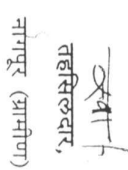 तहसिलदार,
नागपूर (ग्रामीण)